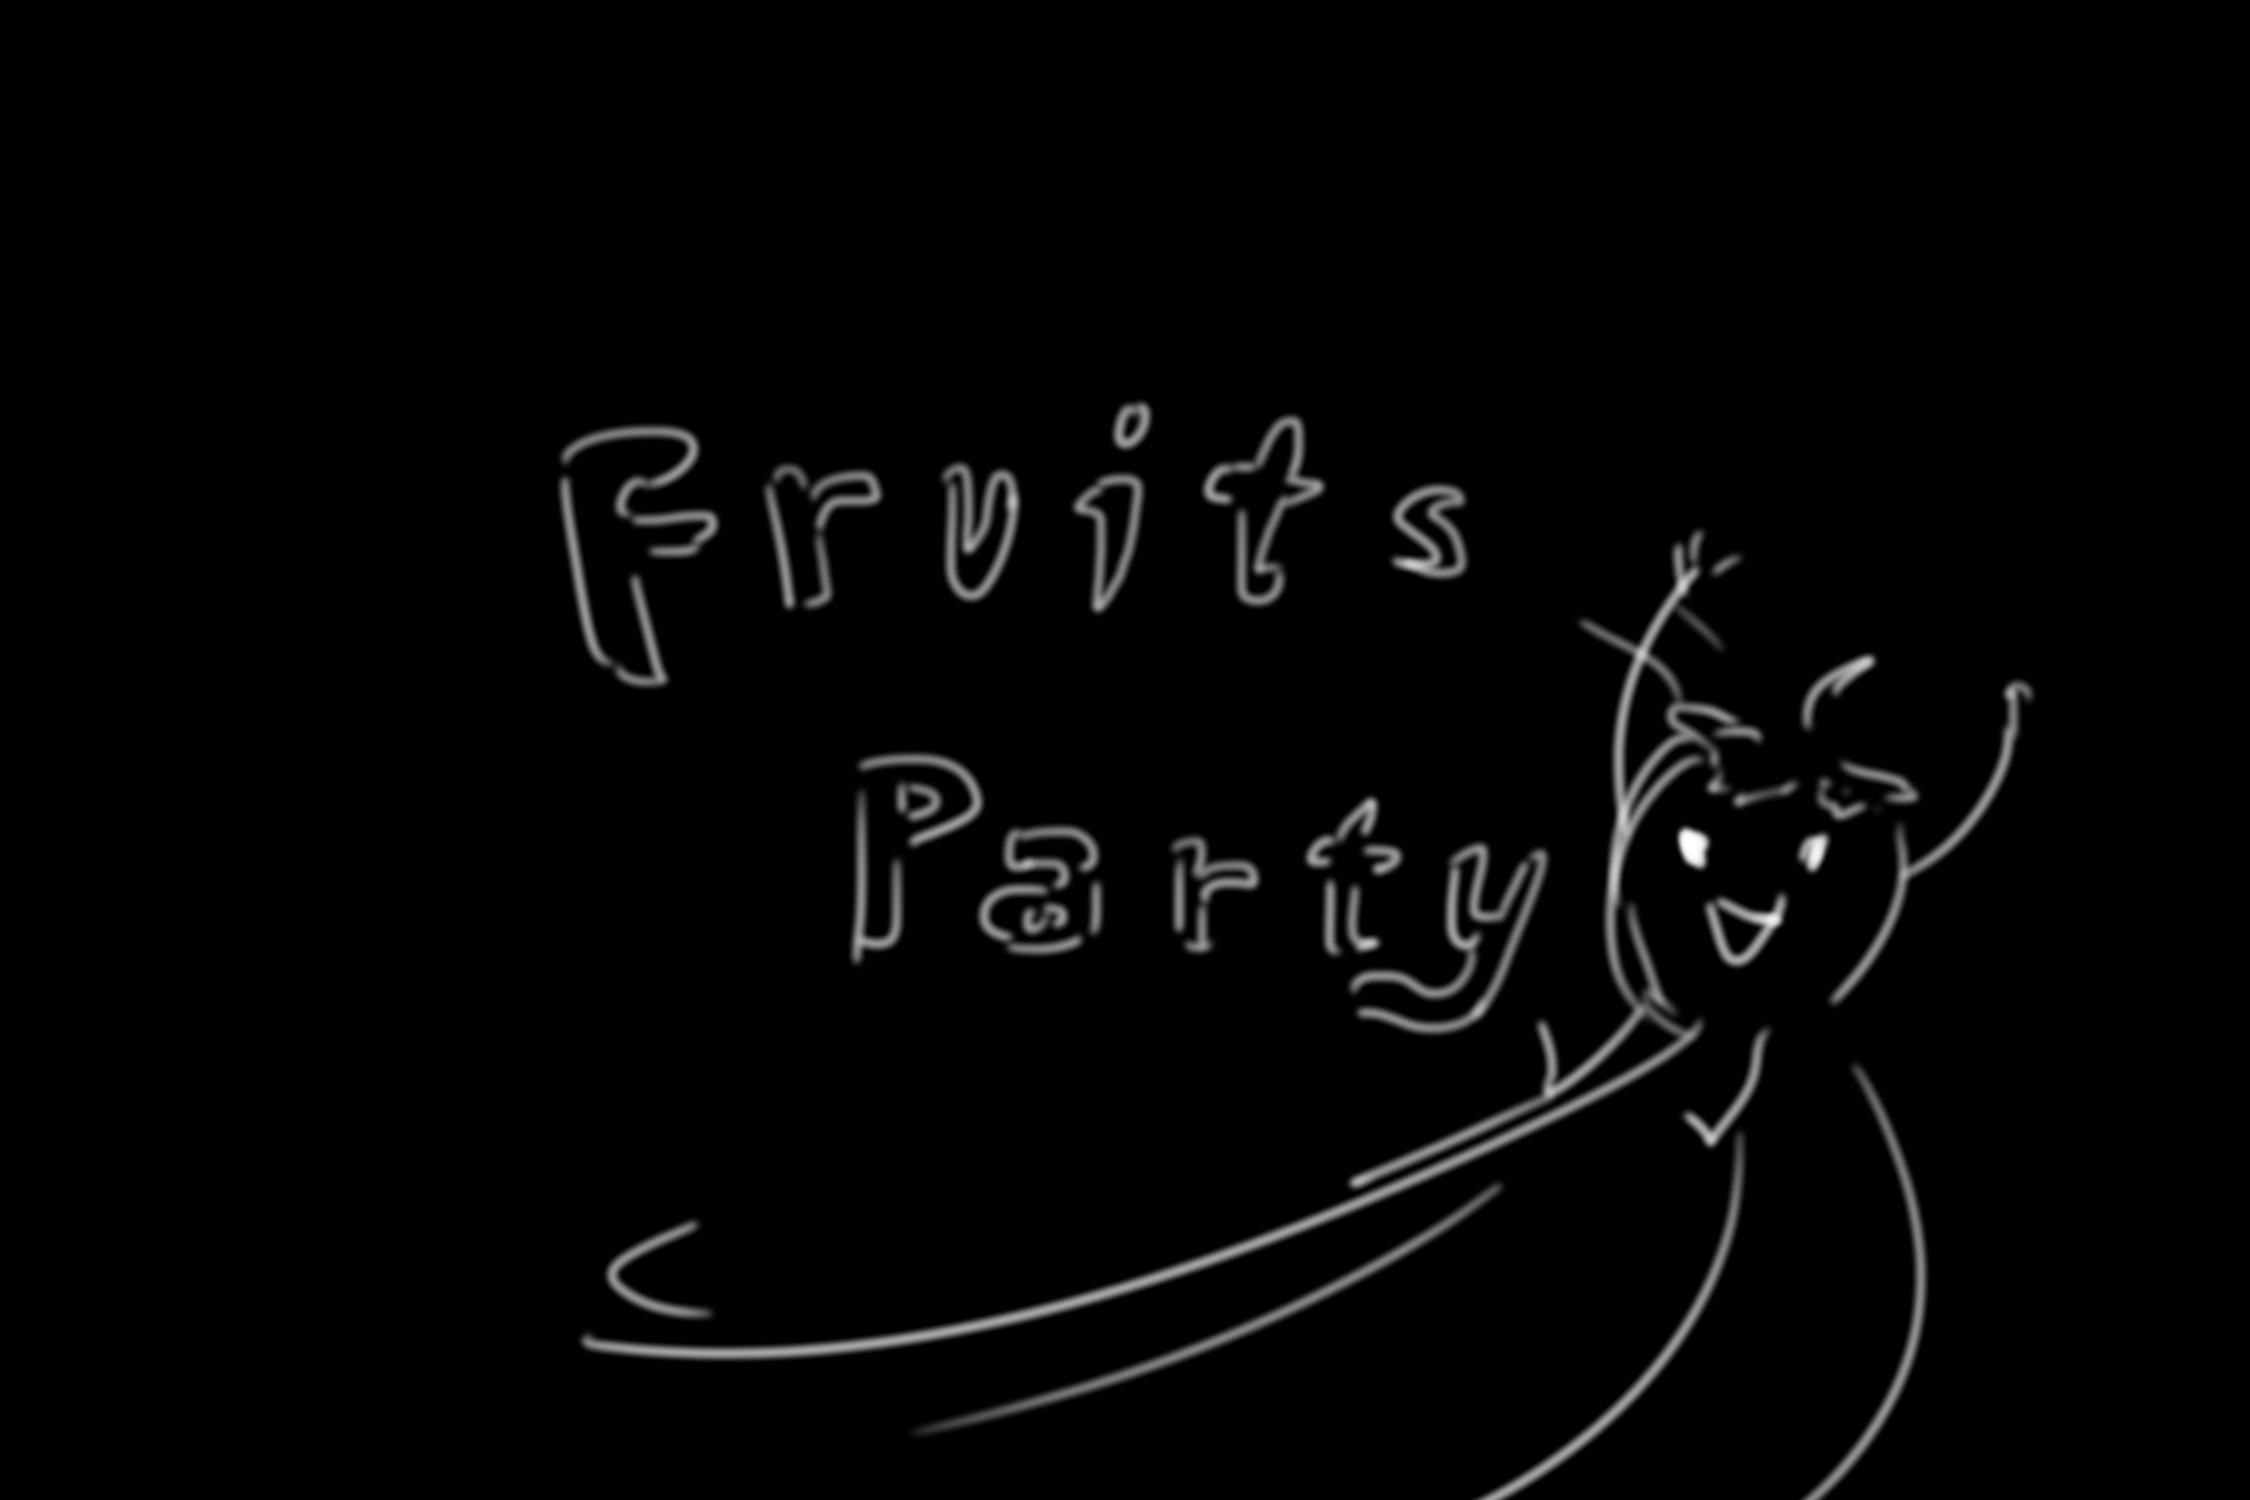 Fruits
Party